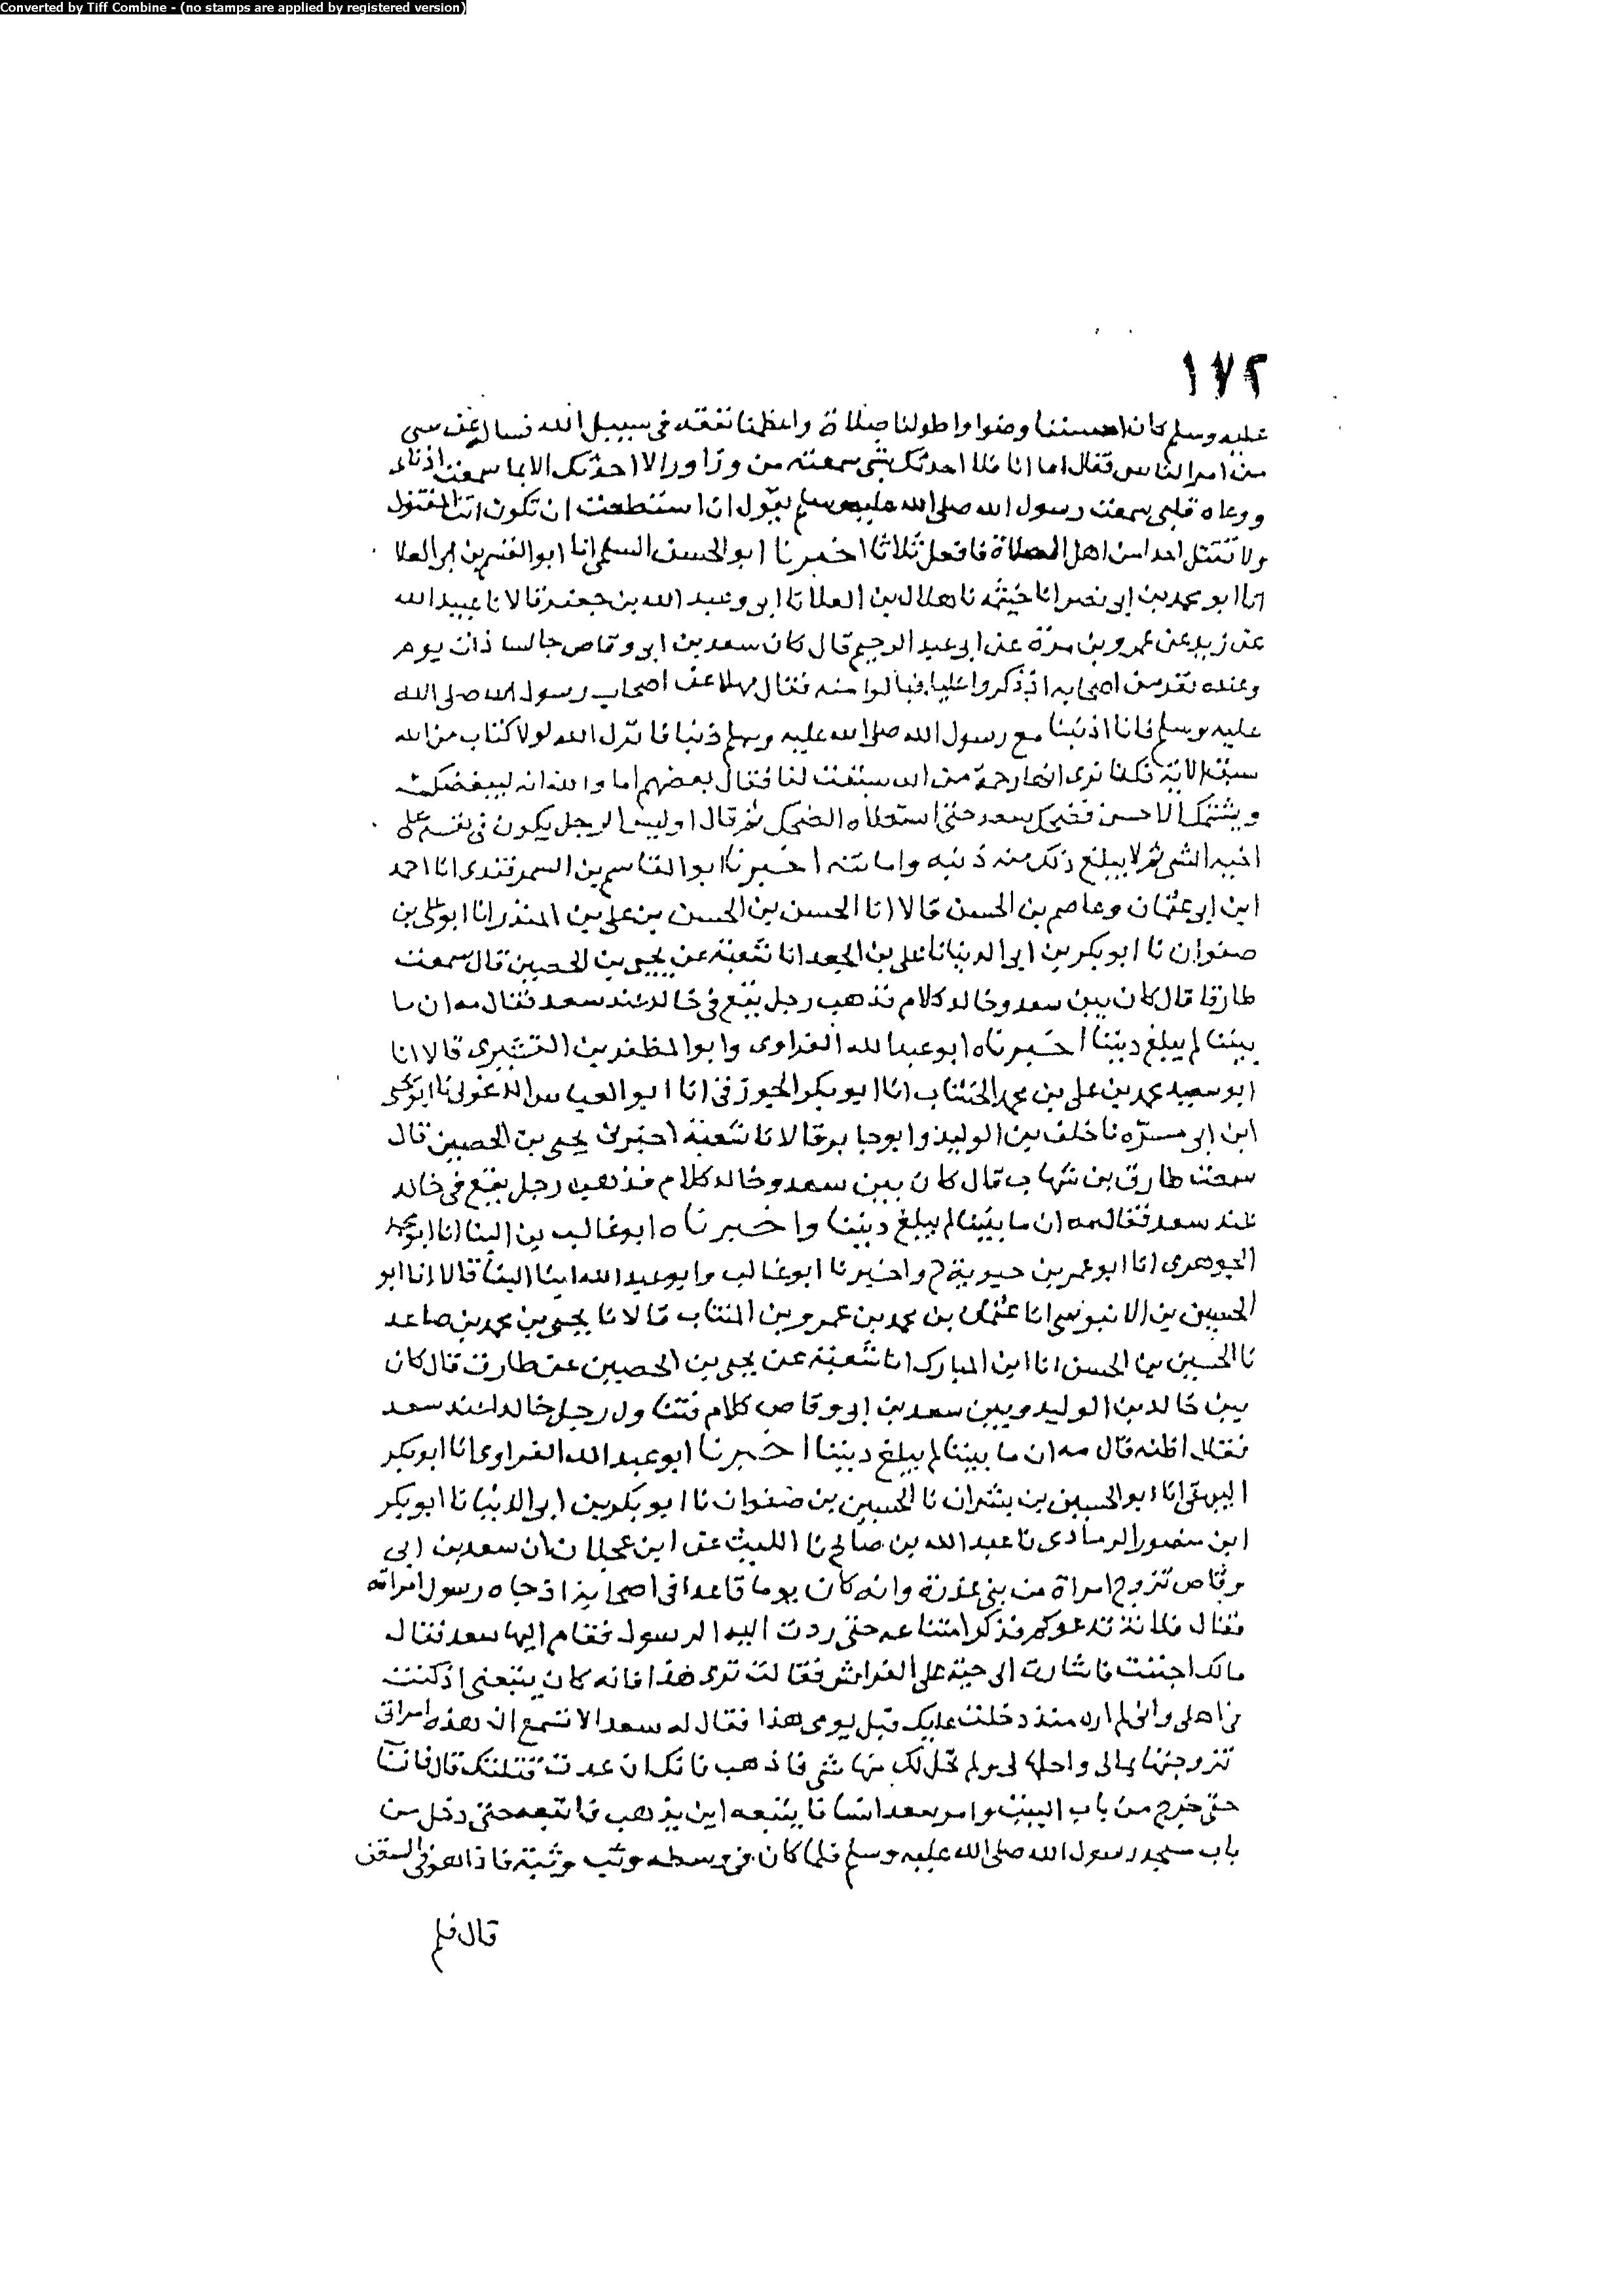 Converted by Tiff Combine - (no stamps are applied by registered version)
١٧٢
عليه وسلم كان احسننا وضوا واطولنا صلاة واعظمنا نفقة فى سبيل الله فسالو عن سى
من امر الناس فقال اما انا فلا احدثك بشى سمعته من وراورا لا احدثك الا بما سمعت اذناى
ووعاه قلبى سمعت رسول الله صلى الله عليه وسلم يقول ان استطعت ان تكون انت المقتول
ولا تقتل احدا من اهل الصلاة فافعل ثلاثا اخبرنا ابو الحسن السلمى انا ابو القسم بن ابى العلا
انا ابو محمد بن ابى نصر انا خيثمه نا هلال بن العلا نا ابى وعبد الله بن جعفر قالا نا عبيد الله
عن زيد عن عمرو بن مرة عن ابى عبد الرحيم قال كان سعد بن ابى وقاص جالسا ذات يوم
وعنده نفر من اصحابه اذ ذكروا عليا فنالوا منه فقال مهلا عن اصحاب رسول الله صلى الله
عليه وسلم فانا اذنبنا مع رسول الله صلى الله عليه وسلم ذنبا فانزل الله لولا كتاب من الله
سبق الاية فكنا نرى انها رحمة من الله سبقت لنا فقال بعضهم اما والله انه ليبغضك
ويشتمك الاحسن فضحك سعد حتى استعلاه الضحك ثم قال اوليس الرجل يكون فى نفسه على
اخيه الشى ثم لا يبلغ ذلك منه ذنبه وامانته اخبرنا ابو القاسم بن السمرقندى انا احمد
ابن ابى عثمان وعاصم بن الحسن قالا انا الحسن بن الحسن بن على بن المنذر انا ابو على بن
صفوان نا ابو بكر بن ابى الدنيا نا على بن الجعد انا شعبة عن يحيى بن الحصين قال سمعت
طارقا قال كان بين سعد وخالد كلام فذهب رجل يقع فى خالد عند سعد فقال مه ان ما
بيننا لم يبلغ ديننا اخبرناه ابو عبد الله الفراوى وابو المظفر بن القشيرى قالا انا
ابو سعيد محمد بن على بن محمد الخشاب انا ابو بكر الجوزقى انا ابو العباس الدغولى نا ابو يحيى
ابن ابى مسرّه نا خلف بن الوليد وابو جابر قالا نا شعبة اخبرنى يحيى بن الحصين قال
سمعت طارق بن شهاب قال كان بين سعد وخالد كلام فذهب رجل يقع فى خالد
عند سعد فقال مه ان ما بيننا لم يبلغ ديننا واخبرناه ابو غالب بن البنا انا ابو محمد
الجوهرى انا ابو عمر بن حيوية ح واخبرنا ابو غالب وابو عبد الله ابنا البنا قالا انا ابو
الحسين بن الابنوسى انا عثمان بن محمد بن عمرو بن المنتاب قالا نا يحيى بن محمد بن صاعد
نا الحسين بن الحسن انا ابن المبارك انا شعبة عن يحيى بن الحصين عن طارق قال كان
بين خالد بن الوليد وبين سعد بن ابى وقاص كلام فتناول رجل خالدا عند سعد
فقال اظنه قال مه ان ما بيننا لم يبلغ ديننا اخبرنا ابو عبد الله الفراوى انا ابو بكر
البيهقى انا ابو الحسين بن بشران نا الحسين بن صفوان نا ابو بكر بن ابى الدنيا نا ابو بكر
ابن منصور الرمادى نا عبد الله بن صالح نا الليث عن ابن عجلان ان سعد بن ابى
وقاص تزوج امراة من بنى عذرة وانه كان يوما قاعدا فى اصحابه اذ جاه رسول امراته
فقال فلانة تدعوكم فذكر امتناعه حتى ردت اليه الرسول فقام اليها سعد فقال
مالك اجننت فاشارت الى حية على الفراش فقالت ترى هذا فانه كان يتبعنى اذ كنت
فى اهلى وانى لم اره منذ دخلت عليك قبل يومى هذا فقال له سعد الا تسمع ان هذه امراتى
تزوجتها بمالى واحلها لى ولم تحل لك منها شى فاذهب فانك ان عدت قتلتك قال فانساب
حتى خرج من باب البيت وامر سعد انسانا يتبعه اين يذهب فاتبعه حتى دخل من
باب مسجد رسول الله صلى الله عليه وسلم فلما كان فى وسطه وثب وثبة فاذا هو فى السقف
قال فلم